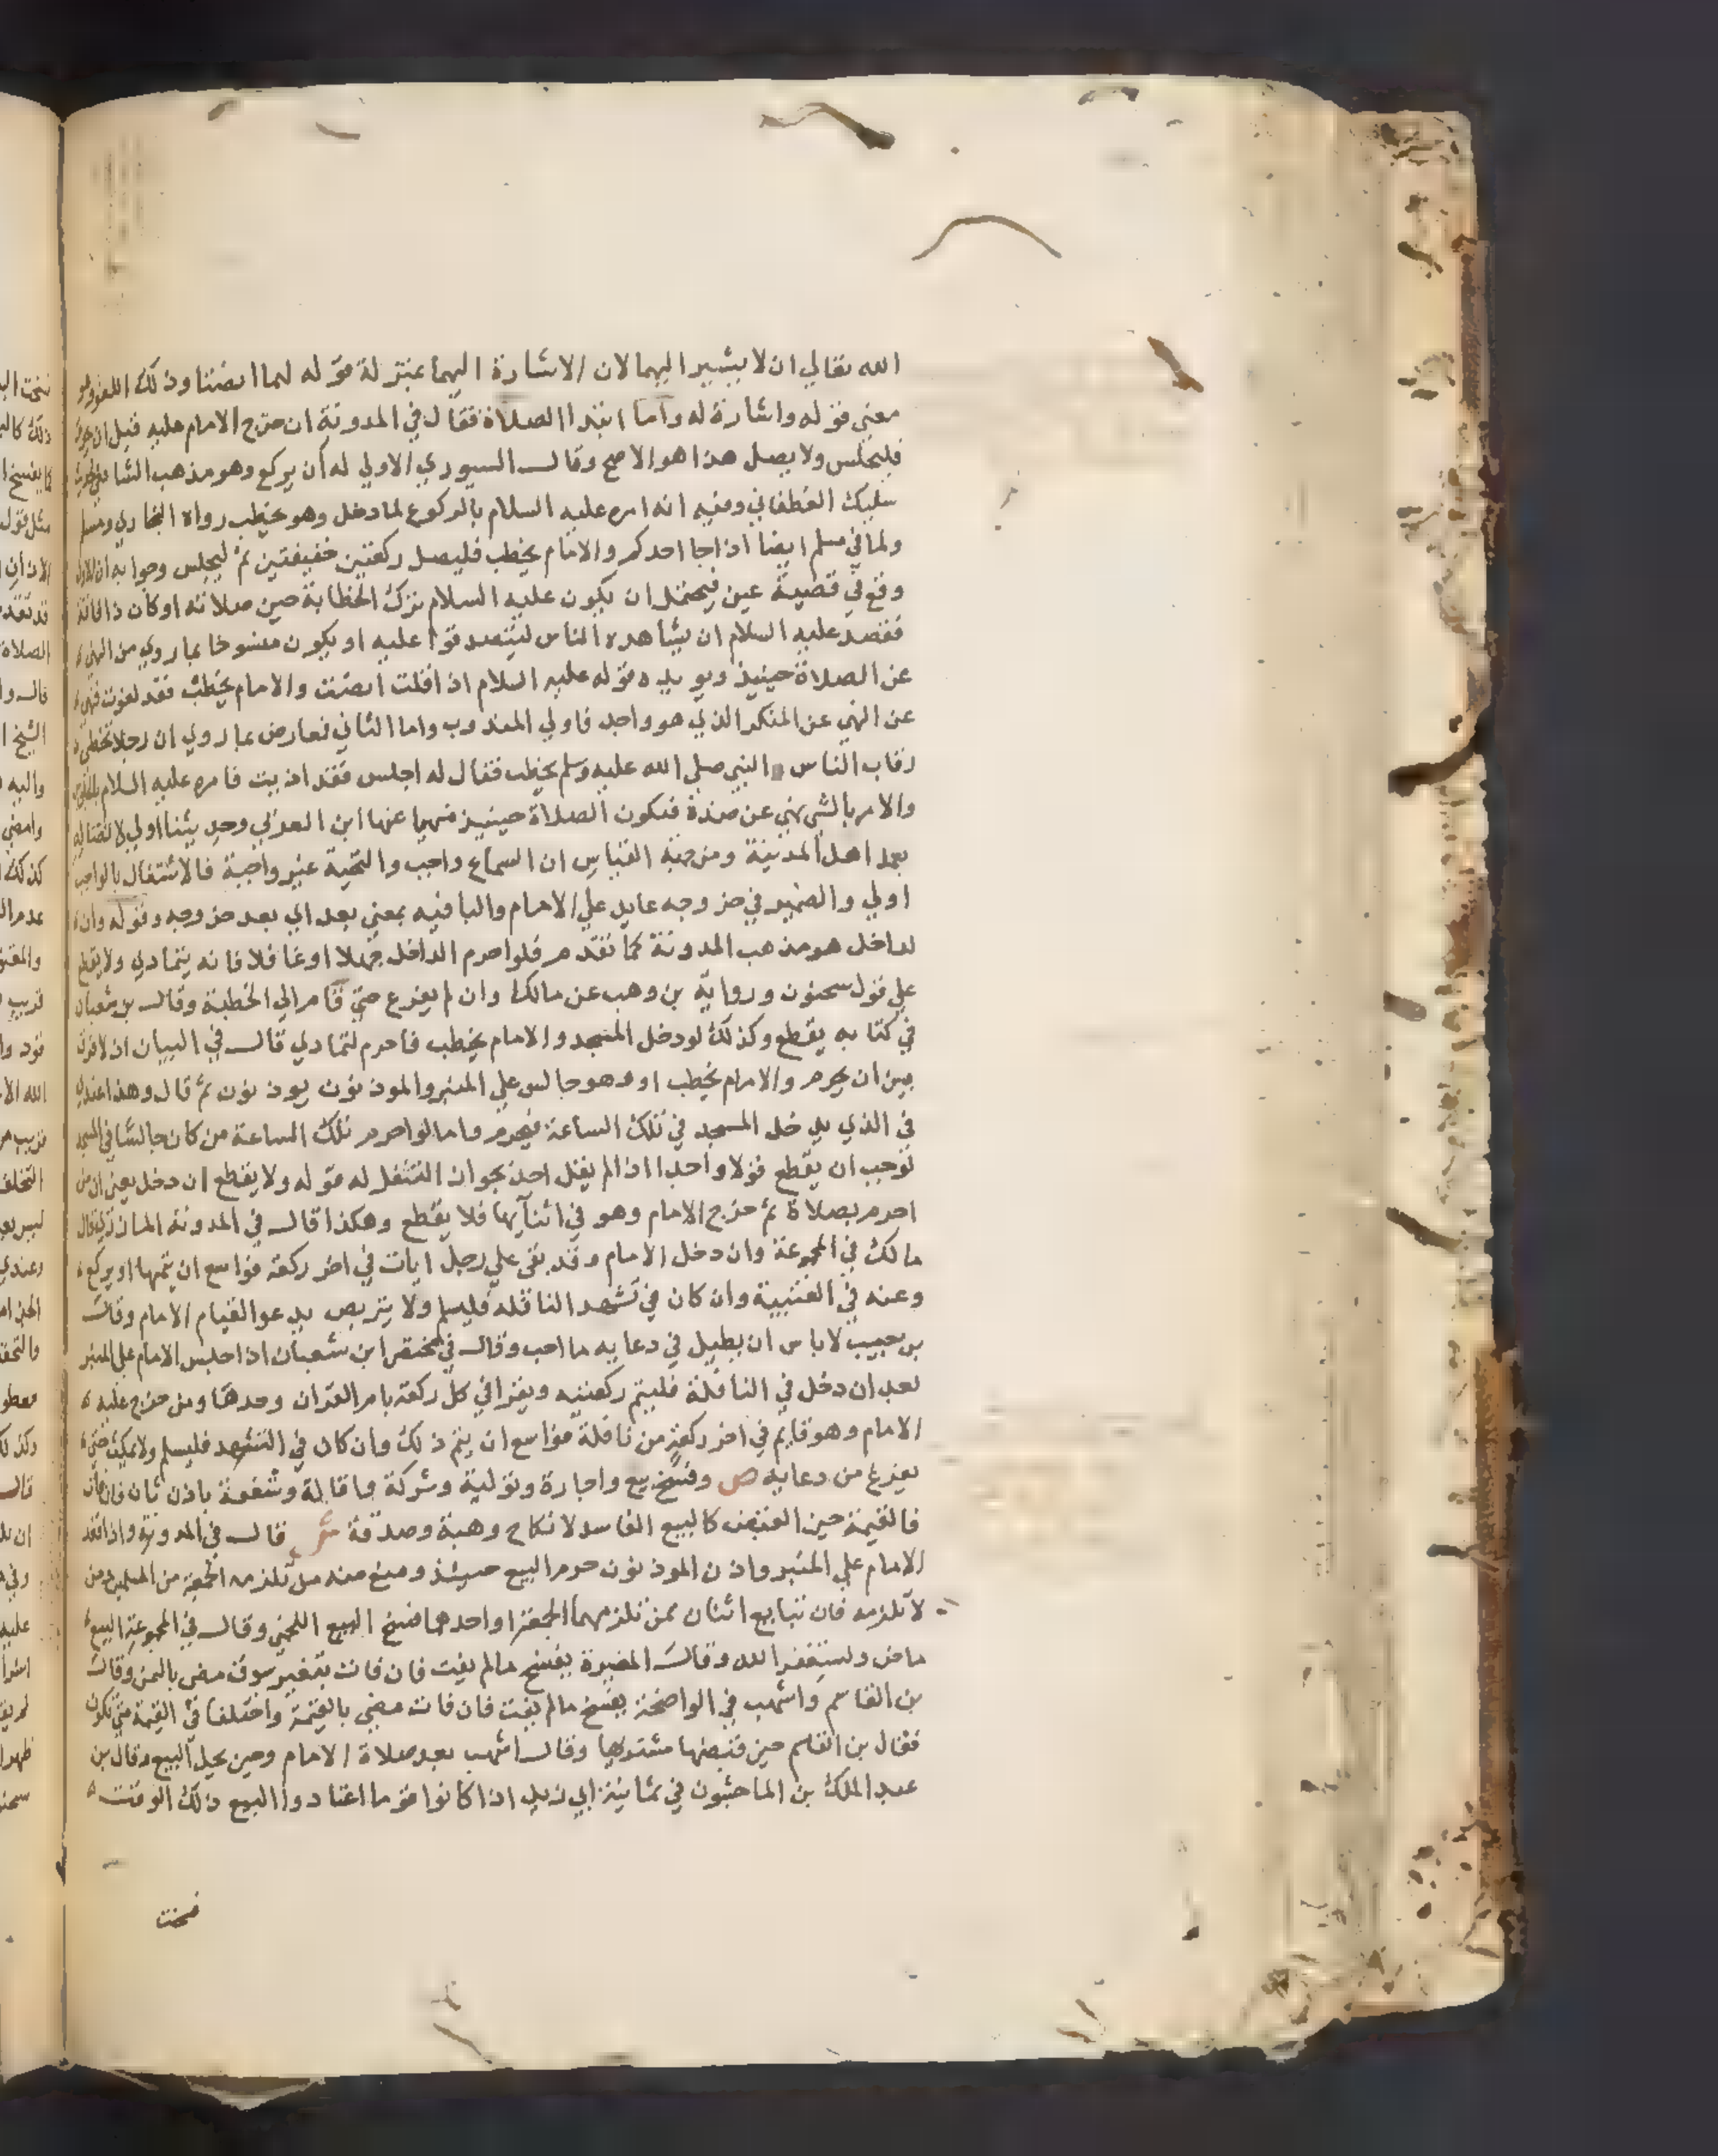 الله تعالي ان لا يشير اليهما لان الاشارة اليهما بمنزلة قوله لهما انصتا وذلك اللغو ولو
معني قوله واشارة له واما ابتدا الصلاة فقال في المدونة ان خرج الامام عليه قبل ان
فليجلس ولا يصل هذا هو الاصح وقال السيوري الاولي له ان يركع وهو مذهب الشافعي لحديث
سليك الغطفاني وفيه انه امره عليه السلام بالركوع لما دخل وهو يخطب رواه البخاري ومسلم
ولما في مسلم ايضا اذا جا احدكم والامام يخطب فليصل ركعتين خفيفتين ثم ليجلس وجوابه ان الاول
وقع في قضية عين فيحتمل ان يكون عليه السلام ترك الخطابة حين صلاته او كان ذا فاقة
فقصد عليه السلام ان يشاهده الناس ليتصدقوا عليه او يكون منسوخا بما روي من النهي
عن الصلاة حينيذ ويويده قوله عليه السلام اذا قلت انصت والامام يخطب فقد لغوت فنهي
عن النهي عن المنكر الذي هو واجب فاولي المندوب واما الثاني فعارض بما روي ان رجلا تخطي
رقاب الناس والنبي صلي الله عليه وسلم يخطب فقال له اجلس فقد اذيت فامره عليه السلام بالجلوس
والامر بالشي نهي عن ضده فتكون الصلاة حينيذ منهيا عنها ابن العربي وحديثنا اولي لاتصاله
بعمل اهل المدينة ومن جهة القياس ان السماع واجب والتحية غير واجبة فالاشتغال بالواجب
اولي والضمير في خروجه عايد علي الامام والبا فيه بمعني بعد اي بعد خروجه وقوله وان
لداخل هو مذهب المدونة كما تقدم فلو احرم الداخل جهلا او غافلا فانه يتمادي ولا يقطع
علي قول سحنون ورواية بن وهب عن مالك وان لم يفرغ حتي قام الي الخطبة وقال بن شعبان
في كتابه يقطع وكذلك لو دخل المسجد والامام يخطب فاحرم لتمادي قال في البيان اذ لا فرق
بين ان يحرم والامام يخطب او وهو جالس علي المنبر والموذنون يوذنون ثم قال وهذا عندي
في الذي يدخل المسجد في تلك الساعة فيحرم واما لو احرم تلك الساعة من كان جالسا في المسجد
لوجب ان يقطع قولا واحدا اذ لم يقل احد بجواز التنفل له قوله ولا يقطع ان دخل يعني ان من
احرم بصلاة ثم خرج الامام وهو في اثنايها فلا يقطع وهكذا قال في المدونة
مالك في المجموعة وان دخل الامام وقد بقي علي رجل ايات في اخر ركعة فواسع ان يتمها او يركع
وعنه في العتبية وان كان في تشهد النافلة فليسلم ولا يتربص يدعو القيام الامام وقال
بن حبيب لا باس ان يطيل في دعايه ما احب وقال في مختصر ابن شعبان اذا جلس الامام علي المنبر
بعد ان دخل في النافلة فليتم ركعتيه ويقرا في كل ركعة بام القران وحدها ومن خرج عليه
الامام وهو قايم في اخر ركعة من نافلة فواسع ان يتم ذلك وان كان في التشهد فليسلم ولا يمكث حتي
يفرغ من دعايه ص وفسخ بيع واجارة وتولية وشركة واقالة وشفعة باذان ثان فان فات
فالقيمة حين القبض كالبيع الفاسد لا نكاح وهبة وصدقة ش قال في المدونة واذا قعد
الامام علي المنبر واذن الموذنون حرم البيع حينيذ ومنع منه من تلزمه الجمعة من المسلمين ومن
لا تلزمه فان تبايع اثنان ممن تلزمهما الجمعة او احدهما فسخ البيع اللخمي وقال في المجموعة البيع
ماض وليستغفر الله وقال المغيرة يفسخ ما لم يفت فان فات بتغير سوق مضي بالثمن وقال
بن القاسم واشهب في الواضحة يفسخ ما لم يفت فان فات مضي بالقيمة واختلفا في القيمة متي تكون
فقال بن القاسم حين قبضها مشتريها وقال اشهب بعد صلاة الامام وحين يحل البيع وقال بن
عبد الملك بن الماجشون في ثمانية ابي زيد اذا كانوا قوما اعتادوا البيع ذلك الوقت
فسخت